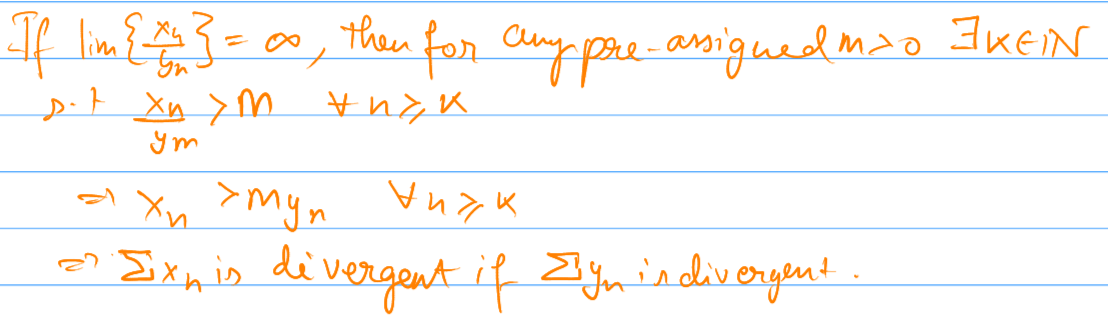 If lim{xn/yn} = ∞, then for any pre-assigned m>0 ∃K∈ℕ
s.t xn/ym > m ∀ n ⩾ K
⇒ xn > myn ∀n ⩾ K
⇒ Σxn is divergent if Σyn is divergent.